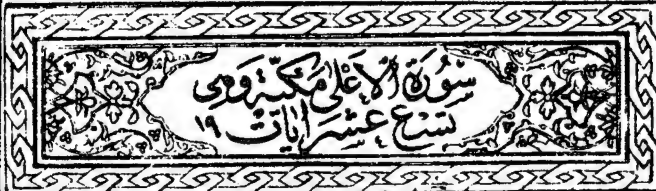 سُورَةُ الْأَعْلَىٰ مَكِّيَّةٌ وَهِيَ
تِسْعَ عَشَرَ آيَاتٍ ١٩